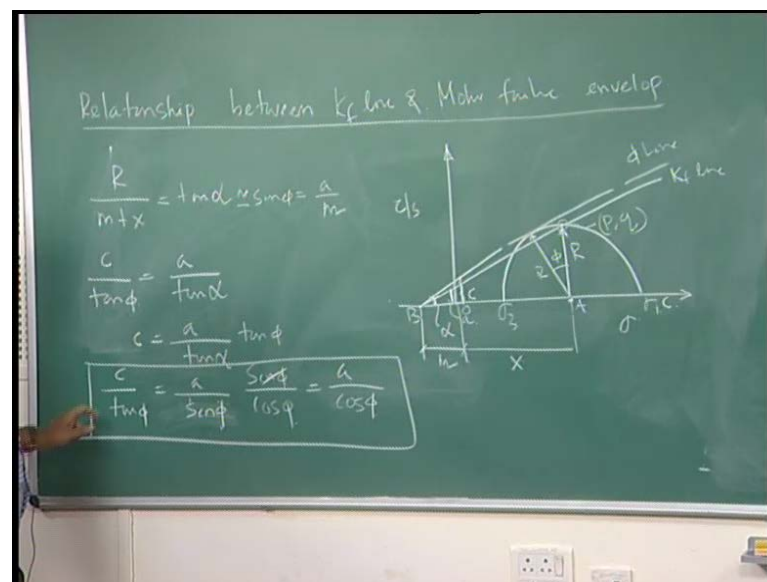 Relationship between Kf line & Mohr failure envelop
R / m+x = tan α ≈ sin φ = a / m
c / tan φ = a / tan α
c = a / tan α tan φ
c / tan φ = a / sin φ sin φ / cos φ = a / cos φ
φ line
Kf line
(p, q)
φ
R
R
B
α
c
a
σ3
A
σ
σ1
m
x